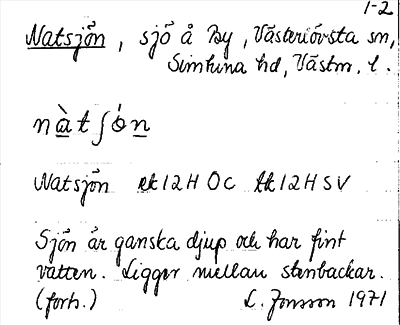 1-2
Natsjön, sjö å By, Västerlövsta sn,
Simtuna hd, Västm. l.
nàtʃón
Natsjön ek 12H OC tk 12H SV
Sjön är ganska djup och har fint
vatten. Ligger mellan stenbackar.
(forts.) L. Jonsson 1971